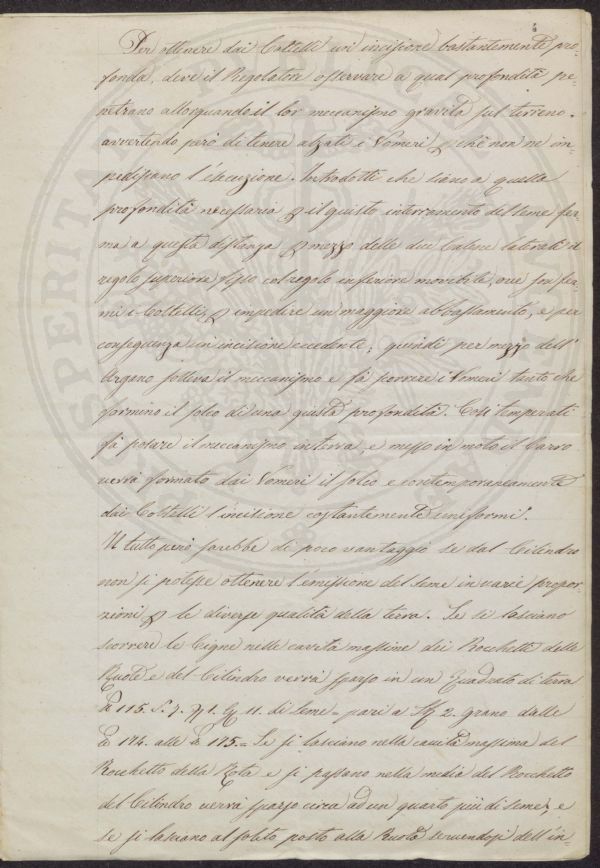 4
Per ottenere dai Coltelli un' incisione bastantemente pro=
fonda, deve il Regolatore osservare a qual profondità pe=
netrano allorquando il lor meccanismo gravita sul terreno.
avvertendo però di tenere alzati i Vomeri che non ne im=
pedispano l'esecuzione. Introdotti che siano a quella
profondità necessaria il giusto interramento del seme fer=
ma a questa distanza mezzo delle due laterali il
regolo superiore fisso col regolo inferiore movibile, ove son fer=
mi i Coltelli, impedire un maggiore abbassamento, e per
conseguenza un' incisione eccedente; quindi per mezzo dell'
Argano solleva il meccanismo e fà scorrere i Vomeri tanto che
formino il solco di una giusta profondità. Così temperati
fà posare il meccanismo in terra, e messo in moto il Carro
verrà formato dai Vomeri il solco e contemporaneamente
dai Coltelli l'incisione costantemente uniformi.
Il tutto però sarebbe di poco vantaggio se dal Cilindro
non si potesse ottenere l'emissione del seme in varie propor=
zioni le diverse qualità della terra. Se si lasciano
scorrere le Cigne nelle cavità massime dei Rocchetti delle
Ruote e del Cilindro verrà sparso in un Quadrato di terra
115. S. 7. 1. 11. di seme = pari a 2. grano dalle
174. alle 175. = Se si lasciano nella cavità massima del
Rocchetto della Rota e si passano nella media del Rocchetto
del Cilindro verrà sparso circa ad un quarto più di seme, e
se si lasciano al solito posto alla Ruota servendosi dell'in=
PROSPERITAS PUBLICAE